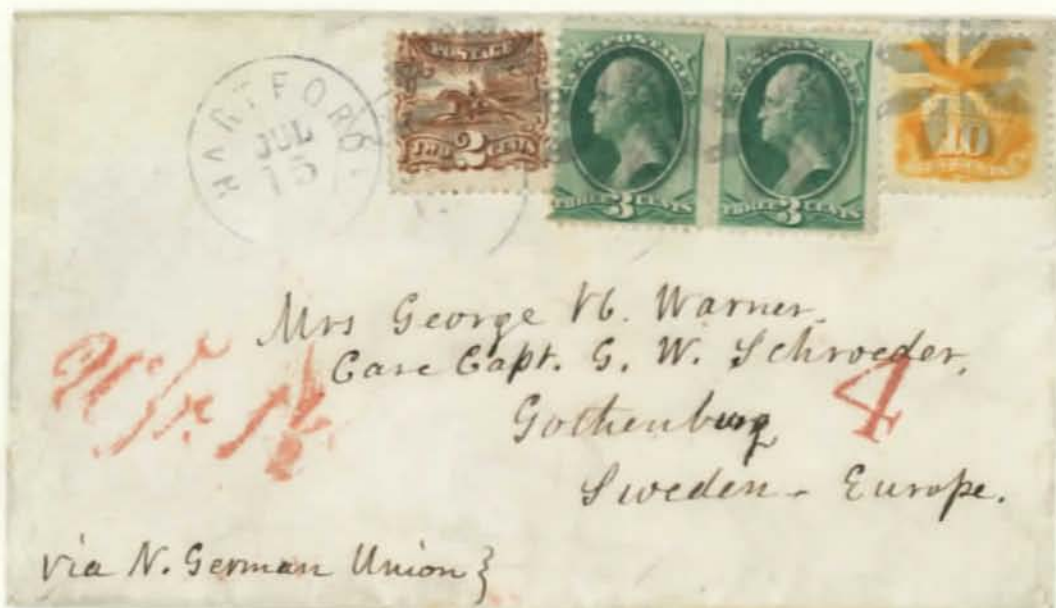 HARTFORD
JUL
15
POSTAGE
TWO 2 CENTS
U.S. POSTAGE
THREE 3 CENTS
U.S. POSTAGE
THREE 3 CENTS
10
Mrs George H. Warner.
Care Capt. G. W. Schroeder,
4
Gothenburg
Sweden - Europe.
via N. German Union }